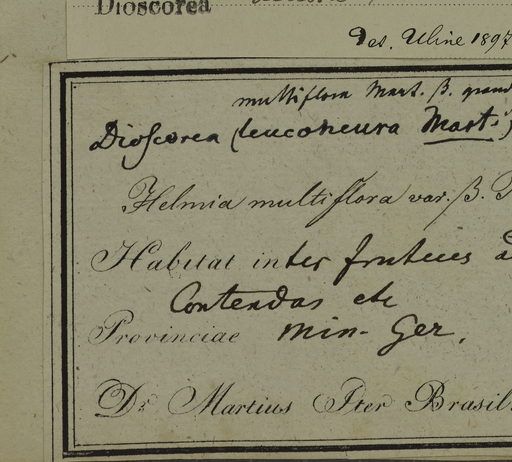 Dioscorea
Det. Uline 1897
multiflora Mart. β. grand
Dioscorea (leuconeura Mart.)
Helmia multiflora var. β.
Habitat inter frutices
Contendas etc
Provinciae Min- Ger.
Dr Martius Iter Brasil.